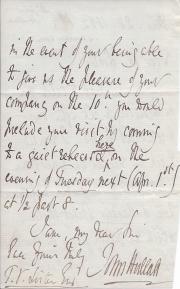 in the event of your being able
to give us the pleasure of your
company on the 10th. you would
preclude your visit by coming
to a quiet rehearsal, here on the
evening of Tuesday next (Apr. 1st)
at ½ past 8.
I am, my dear Sir
Ever Yours truly